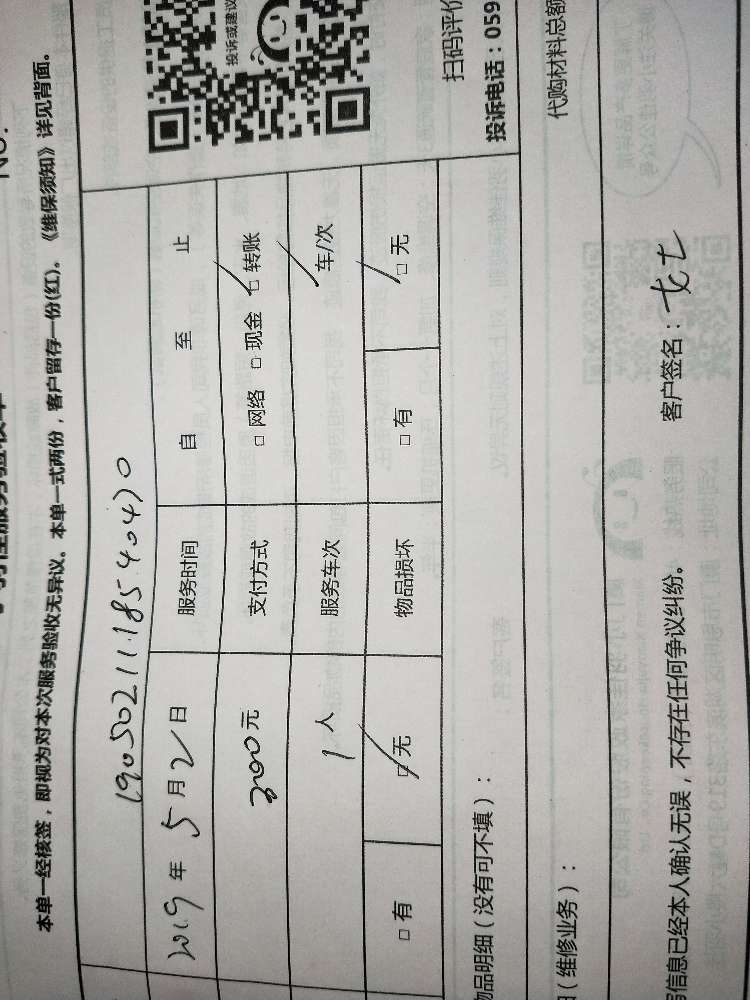 NO.
本单一经核签，即视为对本次服务验收无异议。本单一式两份，客户留存一份(红)。《维保须知》详见背面。
投诉或建议
190502111854040
2019年 5月2日 服务时间 自 至 止
200元 支付方式 □网络 □现金 □转账
1人 服务车次 车/次
□有 □无 物品损坏 □有 □无
扫码评价
投诉电话：059
物品明细（没有可不填）：
代购材料总额
（维修业务）：
信息已经本人确认无误，不存在任何争议纠纷。 客户签名：